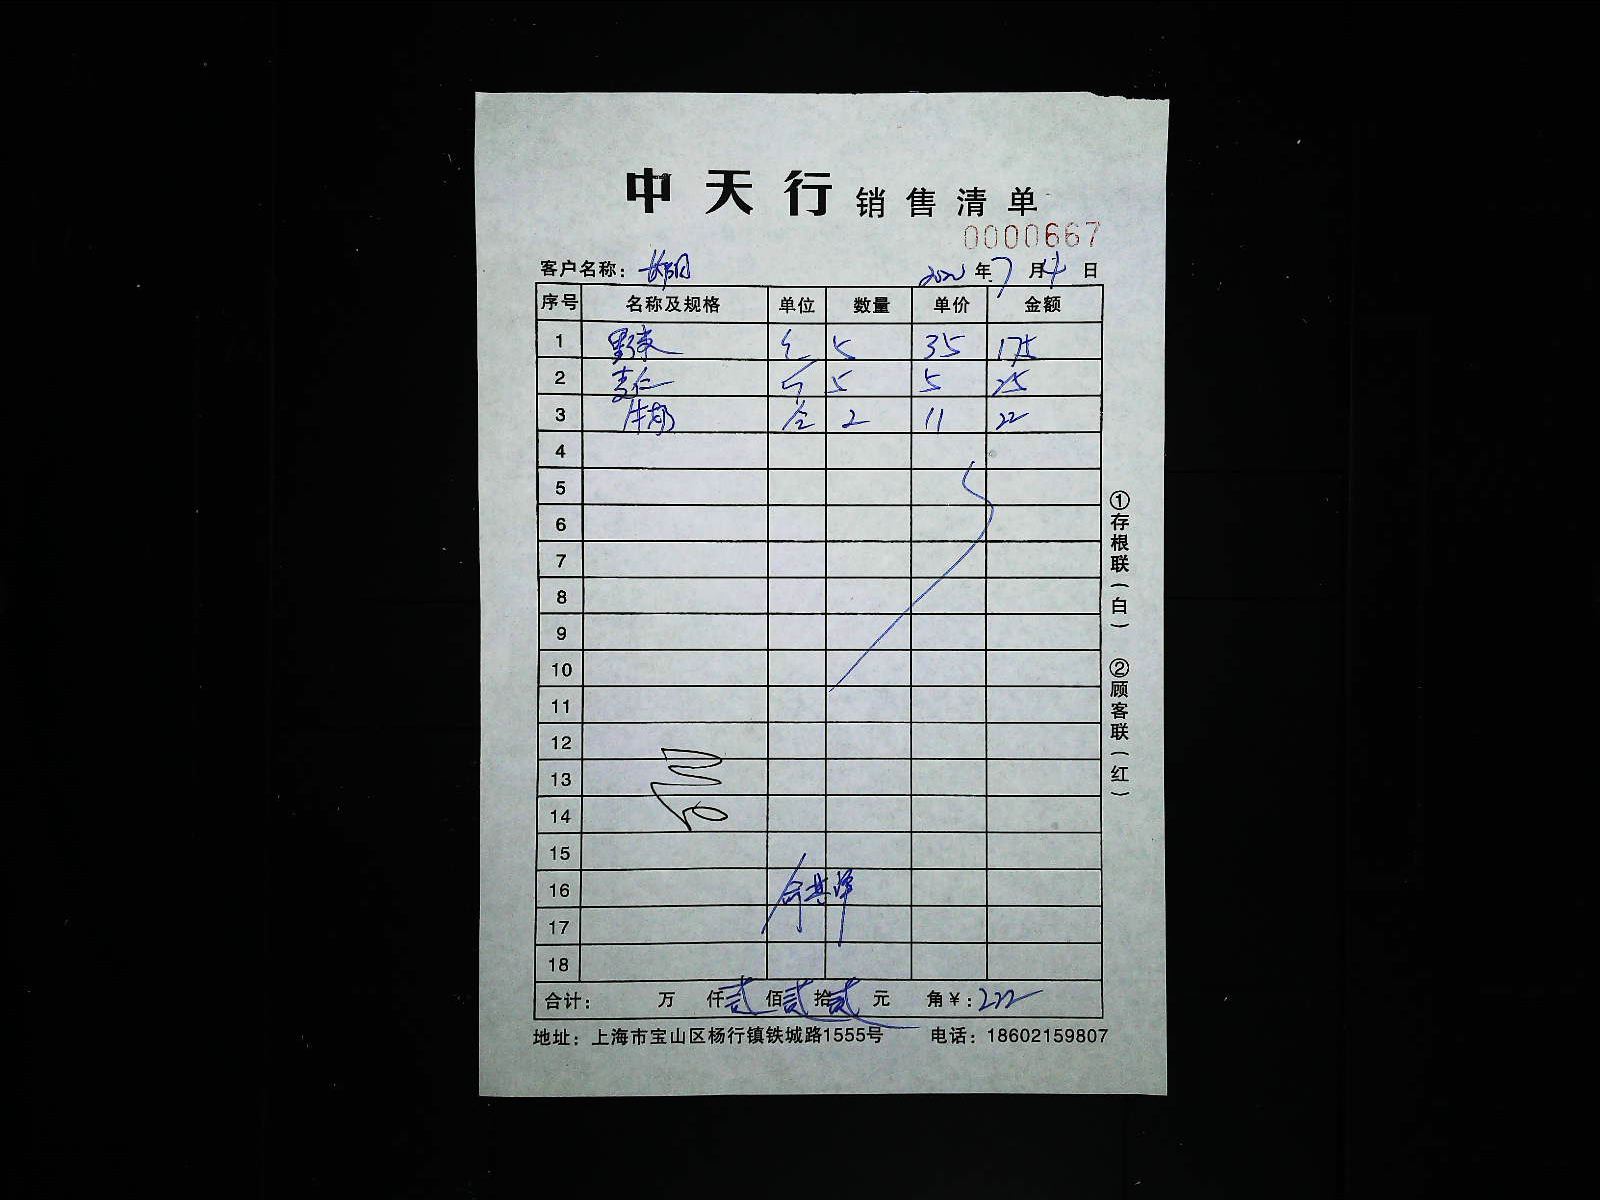 中天行 销售清单
0000667
客户名称： 年 7 月 4 日
序号 名称及规格 单位 数量 单价 金额
1 5 35 175
2 麦仁 5 5 25
3 牛奶 仓 2 11 22
4
5
6
7
8
9
10
11
12
13
14
15
16
17
18
合计： 万 仟 贰 佰 贰 拾 贰 元 角 ￥：222
地址：上海市宝山区杨行镇铁城路1555号 电话：18602159807
①存根联（白） ②顾客联（红）